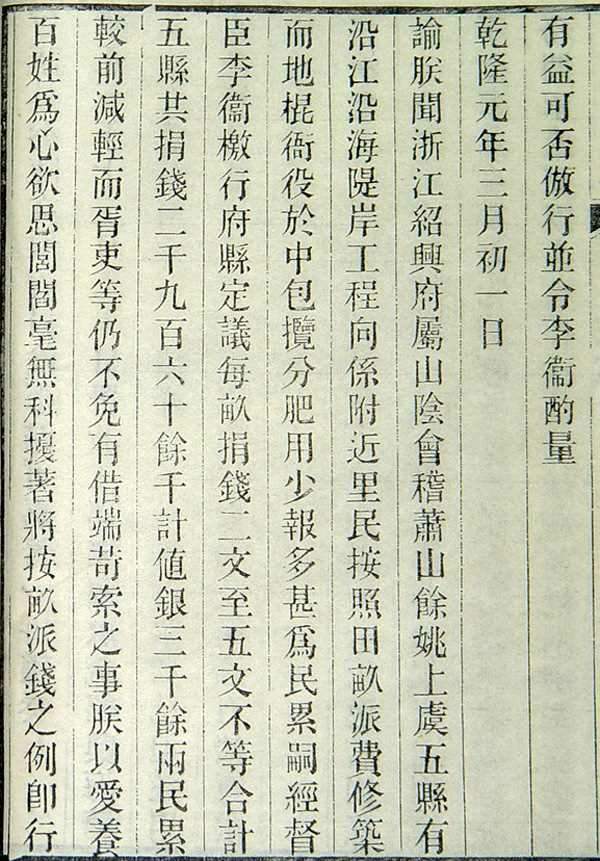 有益可否倣行並令李衞酌量
乾隆元年三月初一日
諭朕聞浙江紹興府屬山陰會稽蕭山餘姚上虞五縣有
沿江沿海隄岸工程向係附近里民按照田畝派費修築
而地棍衙役於中包攬分肥用少報多甚爲民累嗣經督
臣李衞檄行府縣定議每畝捐錢二文至五文不等合計
五縣共捐錢二千九百六十餘千計値銀三千餘兩民累
較前減輕而胥吏等仍不免有借端苛索之事朕以愛養
百姓爲心欲思閭閻毫無科擾著將按畝派錢之例卽行